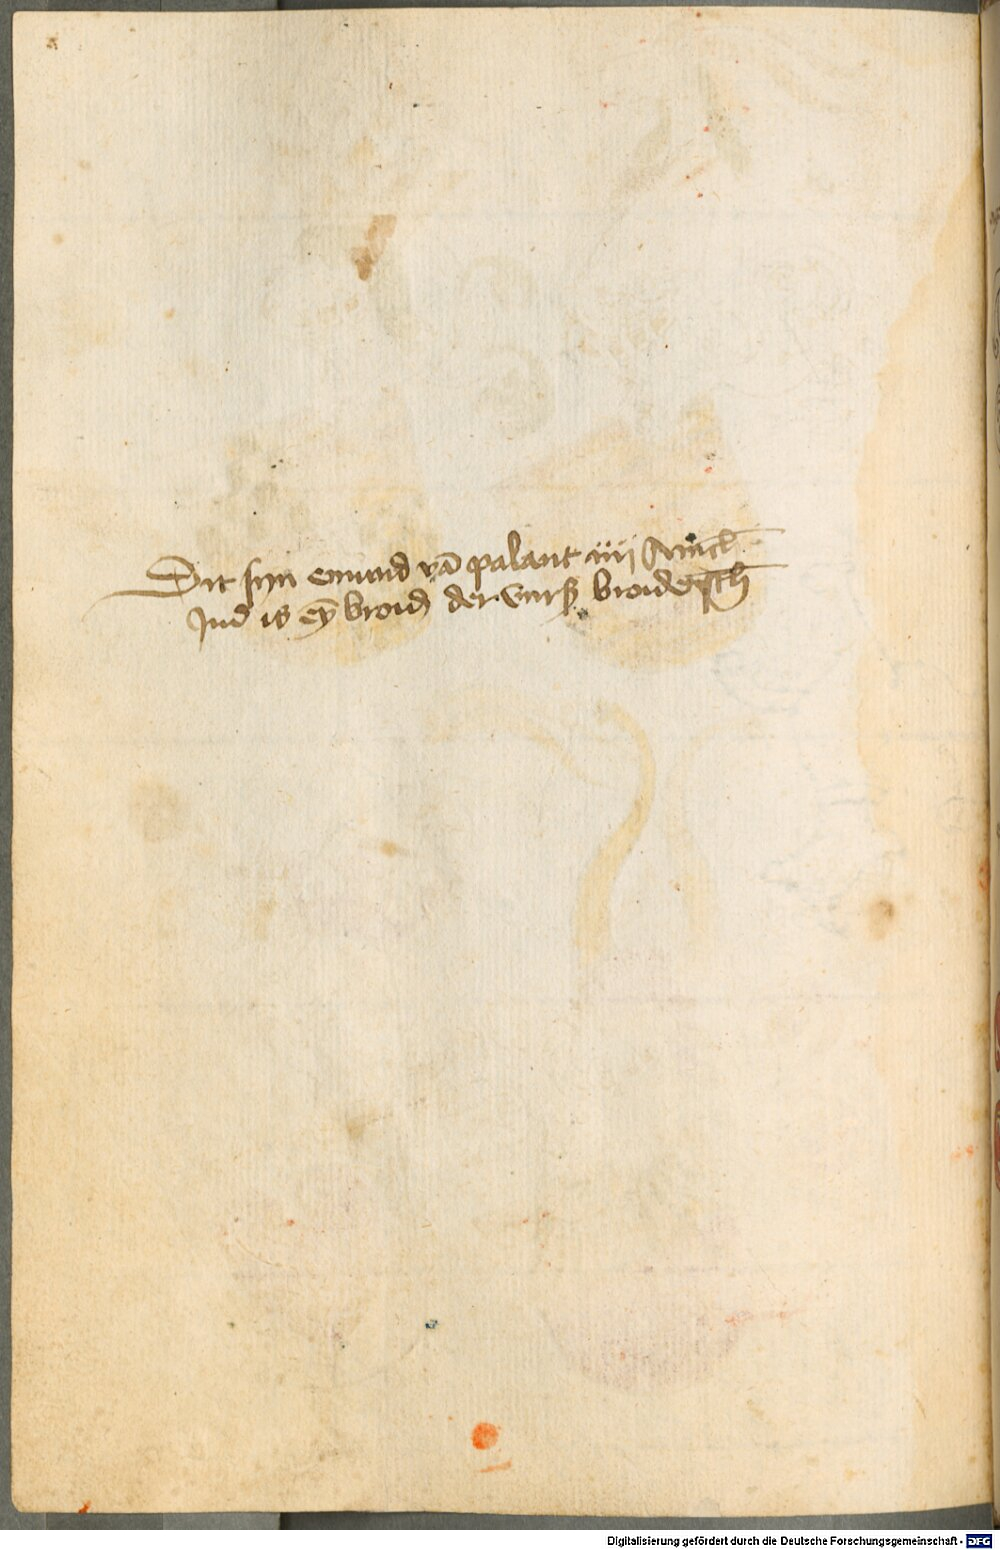 Dit syn emund vā palant iiij Aench
Ind is ey̅ broid der vurß broidersch
Digitalisierung gefördert durch die Deutsche Forschungsgemeinschaft - DFG